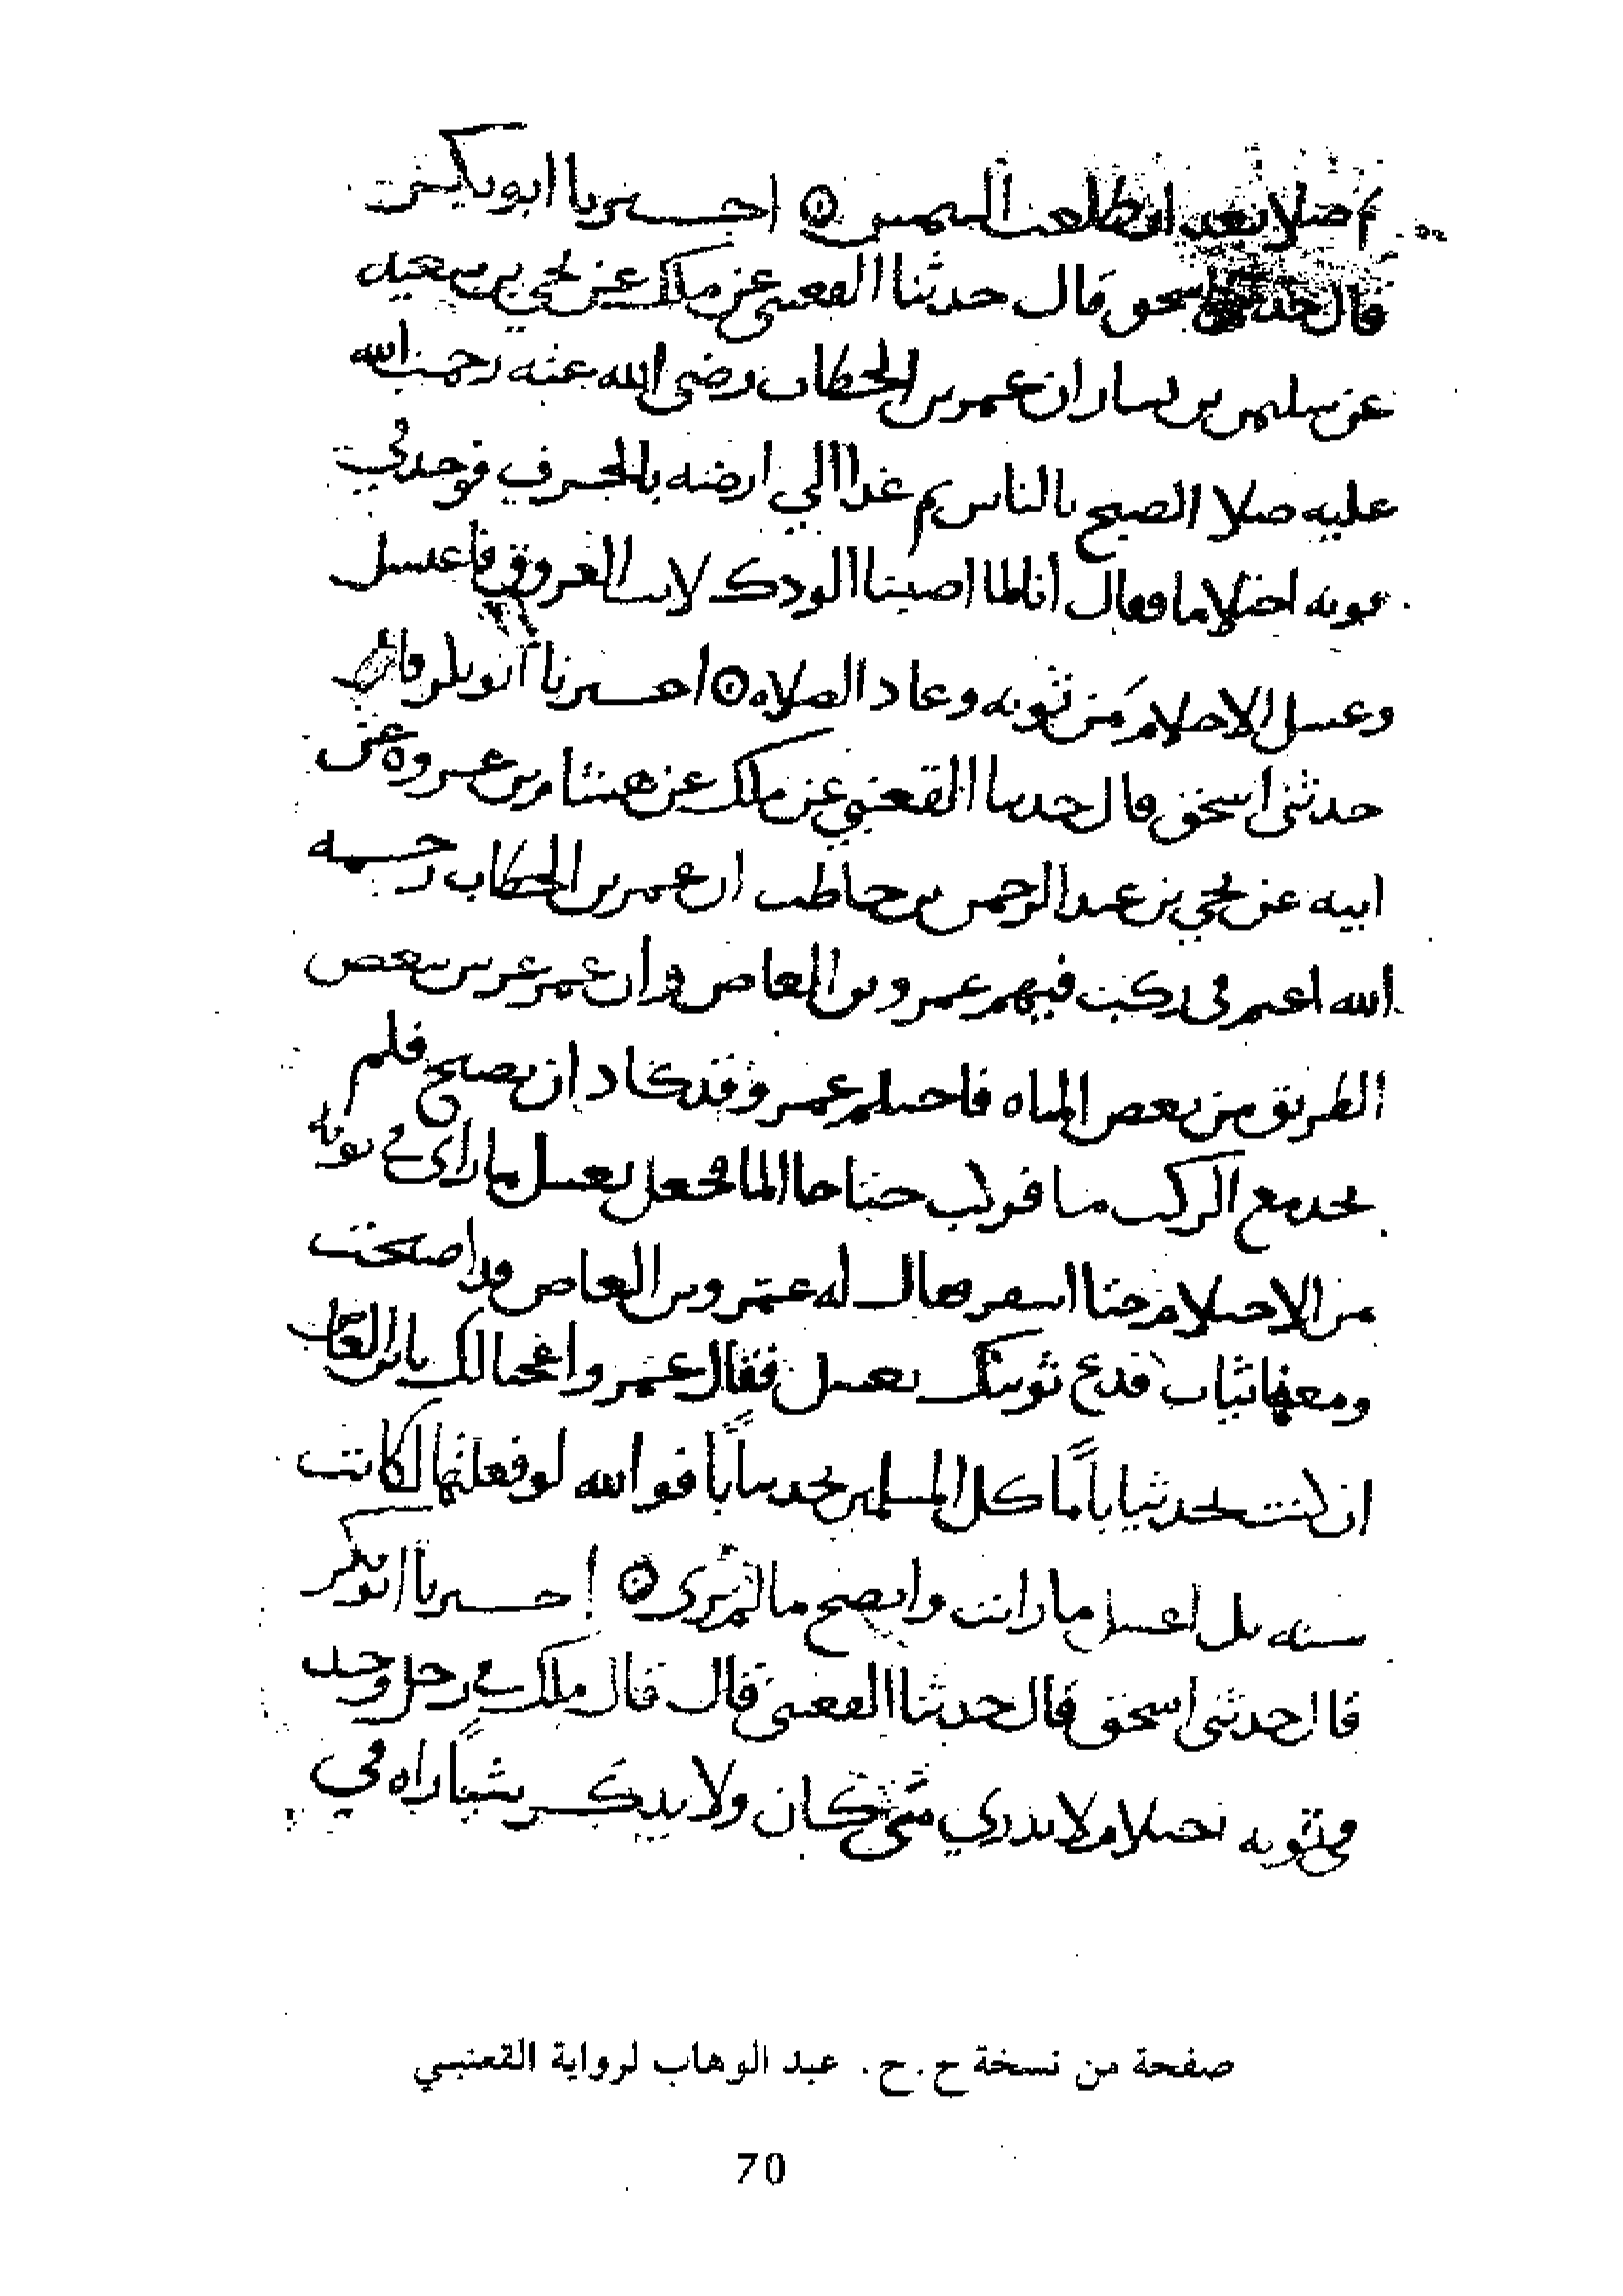 ثم صلا بعد ان طلعت الشمس ⊙ اخبرنا ابو بكر
قال حدثني اسحق قال حدثنا القعنبي عن ملك عن يحيى بن سعيد
عن سليمن بن يسار ان عمر بن الخطاب رضى الله عنه رحمت الله
عليه صلا الصبح بالناس ثم غدا الي ارضه بالجرف فوجد في
ثوبه احتلاما فقال انا لما اصبنا الودك لانت العروق فاغتسل
وغسل الاحتلام من ثوبه وعاد الصلاه ⊙ اخبرنا ابو بكر قال
حدثنى اسحق قال حدثنا القعنبي عن ملك عن هشام بن عروه عن
ابيه عن يحيي بن عبد الرحمن بن حاطب ان عمر بن الخطاب رحمه
الله اعتمر في ركب فيهم عمرو بن العاص وان عمر عرس ببعض
الطريق من بعض المياه فاحتلم عمر وقد كاد ان يصبح فلم
يجد مع الركب ما فركب حتا جا الما فجعل يغسل ما راى في ثوبه
من الاحتلام حتا اسفر فقال له عمرو بن العاص قد اصبحت
ومعنا ثياب فدع ثوبك يغسل فقال عمر واعجبا لك يا بن العاص
ان كنت تجد ثيابا ما كل المسلمين يجد ثيابا فوالله لو فعلتها لكانت
سنه بل اغسل ما رايت وانضح ما لم ترى ⊙ اخبرنا ابو بكر
قال حدثنى اسحق قال حدثنا القعنبى قال قال ملك في رجل وجد
في ثوبه احتلام لا يدري متى كان ولا يذكر شيئا راه في
صفحة من نسخة ح. ح. عبد الوهاب لرواية القعنبي
70